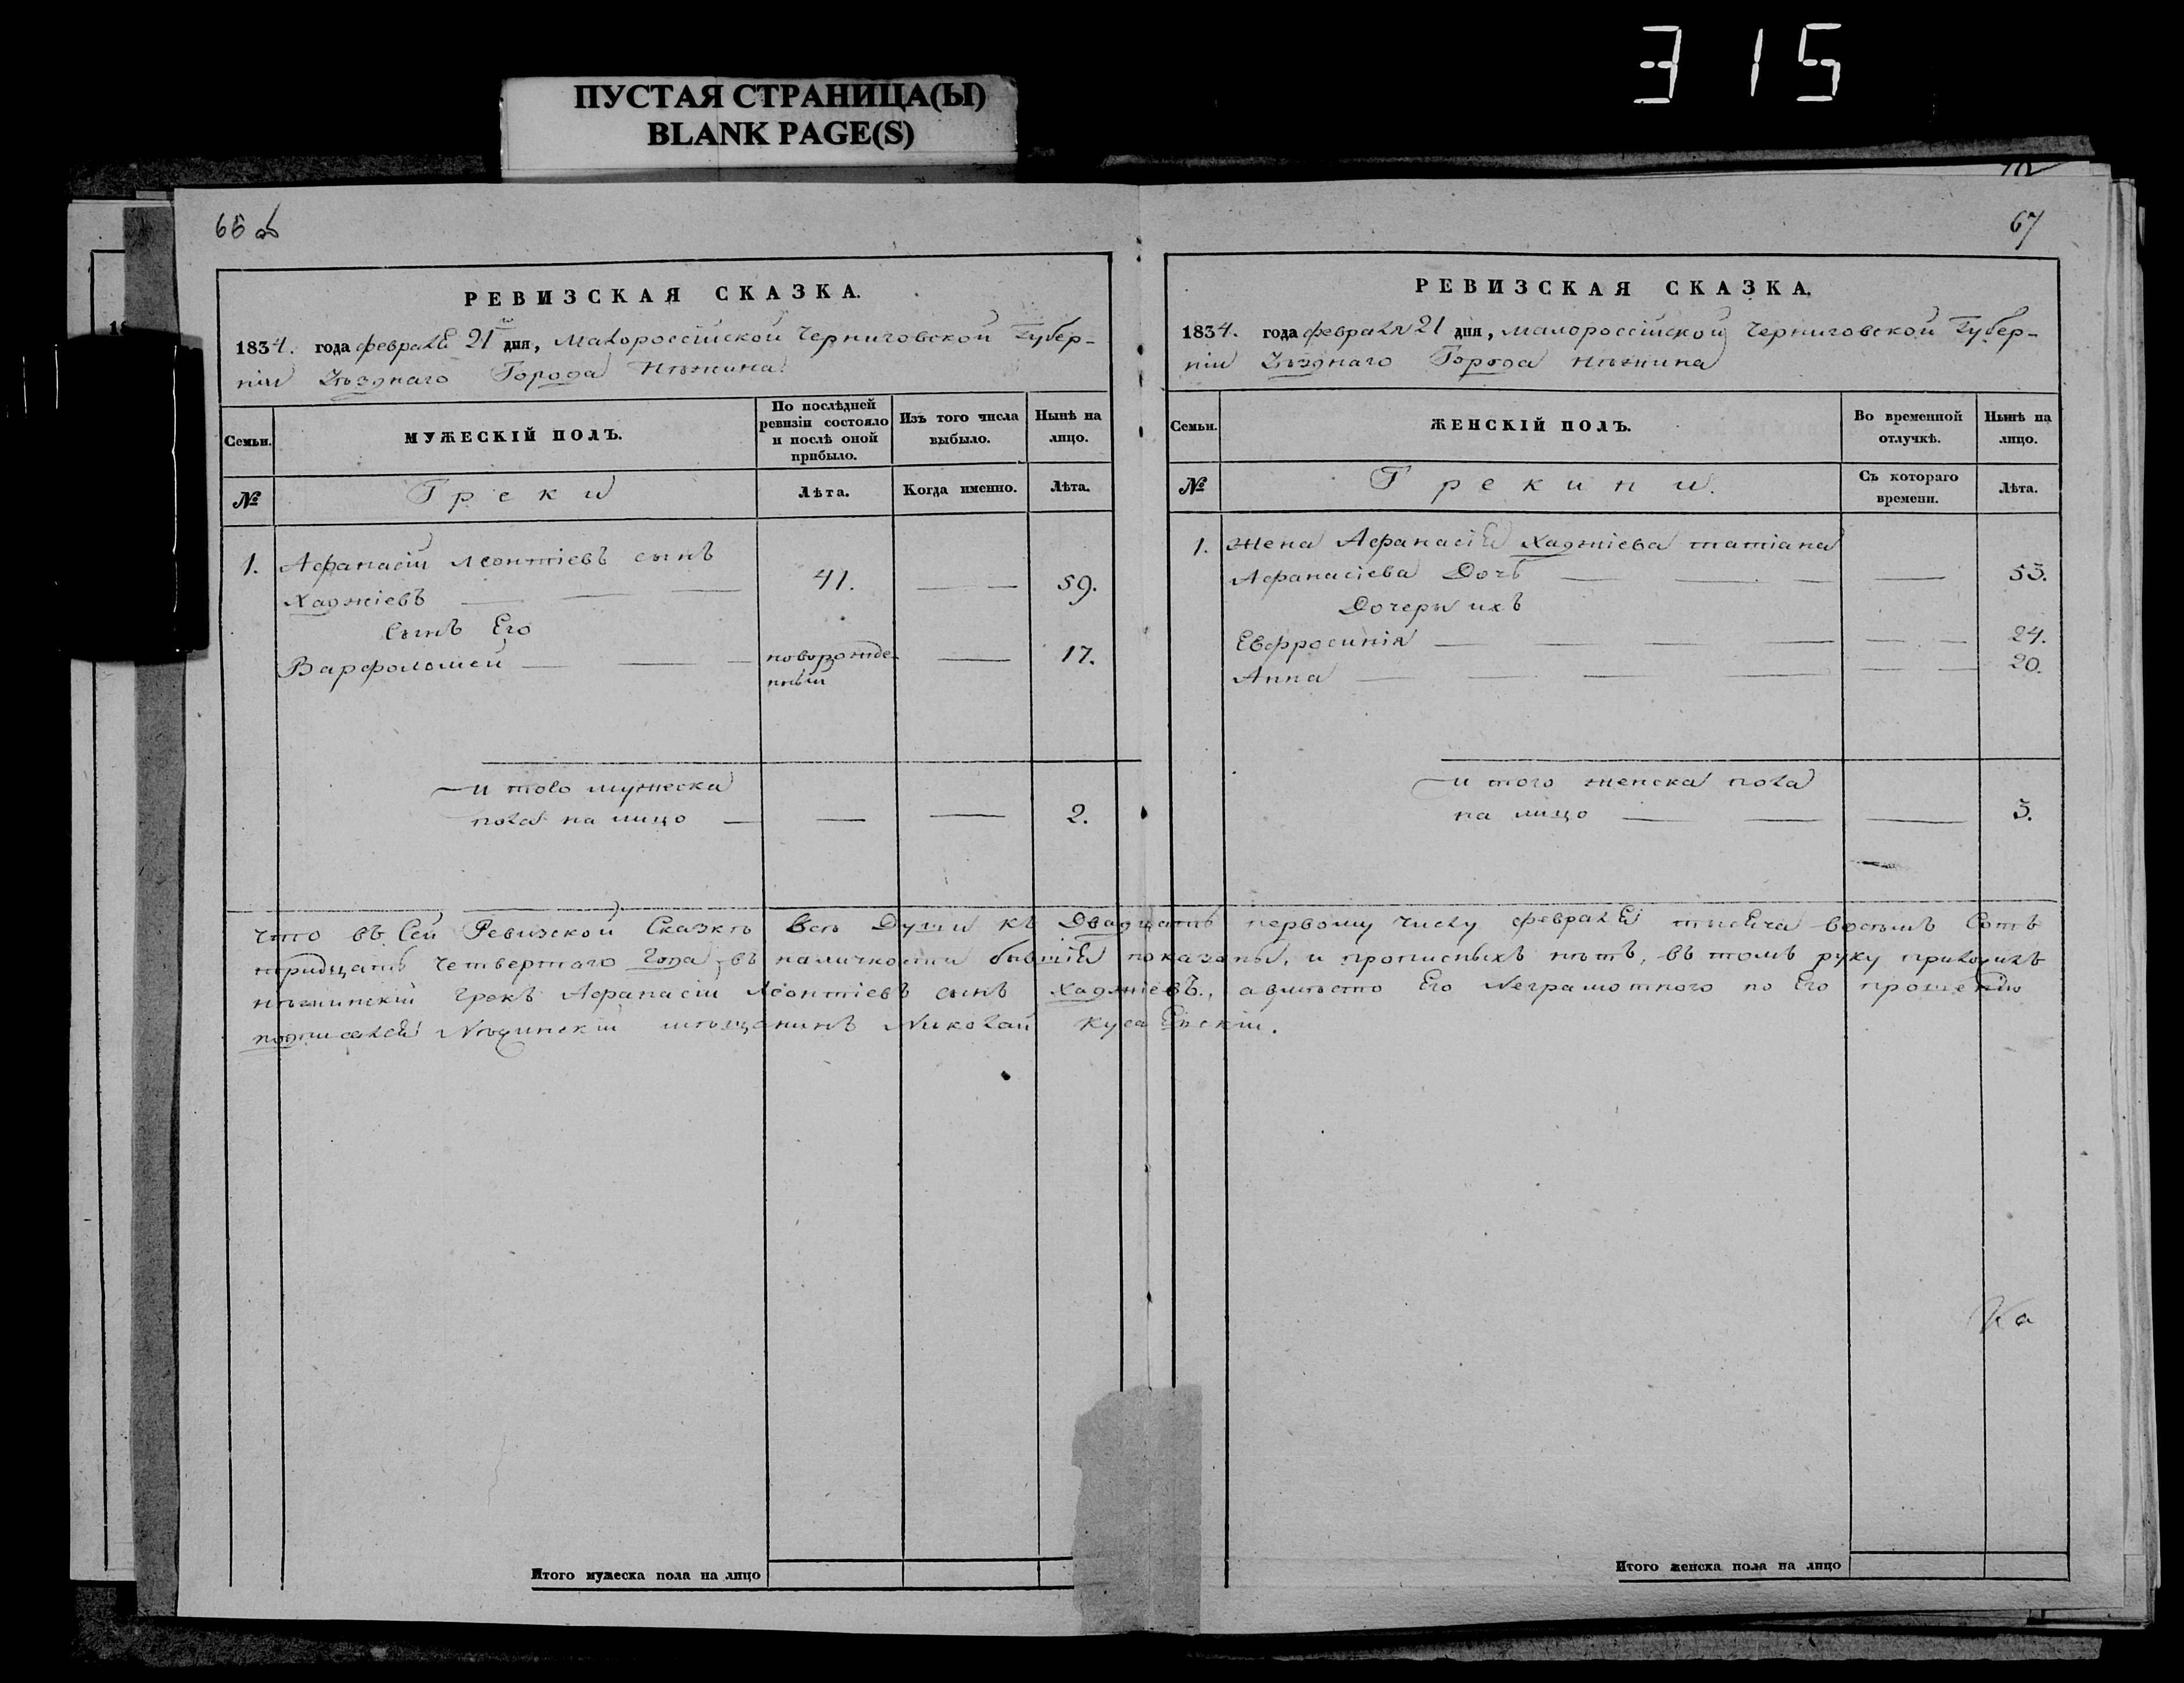 315
ПУСТАЯ СТРАНИЦА(Ы)
BLANK PAGE(S)
66 об
РЕВИЗСКАЯ СКАЗКА.
1834. года февраля 21 дня, Малороссійской Черниговской Губер-
ніи Уѣзднаго Города Нѣжина
Семьи.
МУЖЕСКІЙ ПОЛЪ.
По послѣдней ревизіи состояло и послѣ оной прибыло.
Изъ того числа выбыло.
Нынѣ на лицо.
№
Греки
Лѣта.
Когда именно.
Лѣта.
1. Афанасій Леонтіевъ сынъ
Хаджіевъ — — — 41. — — 59.
Сынъ Его
Варфоломей — — — новорожде- — 17.
нный
И того мужеска
пола на лицо — — — 2.
67
РЕВИЗСКАЯ СКАЗКА.
1834. года февраля 21 дня, Малороссійской Черниговской Губер-
ніи Уѣзднаго Города Нѣжина
Семьи.
ЖЕНСКІЙ ПОЛЪ.
Во временной отлучкѣ.
Нынѣ на лицо.
№
Грекини.
Съ котораго времени.
Лѣта.
1. Жена Афанасія Хаджіева Татіана
Афанасіева Дочь — — — — 53.
Дочери ихъ
Евфросинія — — — — — 24.
Анна — — — — — — 20.
И того женска пола
на лицо — — — 3.
Что въ Сей Ревизской Сказкѣ Всѣ Души къ Двадцать первому числу февраля тысяча восемь Сотъ
тридцать Четвертаго Года въ наличности бывшія показаны, и прописныхъ нѣтъ, въ томъ руку приложилъ
нѣжинскій Грекъ Афанасій Леонтіевъ сынъ Хаджіевъ., а вмѣсто Его Неграмотного по Его прошенію
подписался Нѣжинскій мѣщанинъ Николай
Ка
Итого мужеска пола на лицо
Итого женска пола на лицо